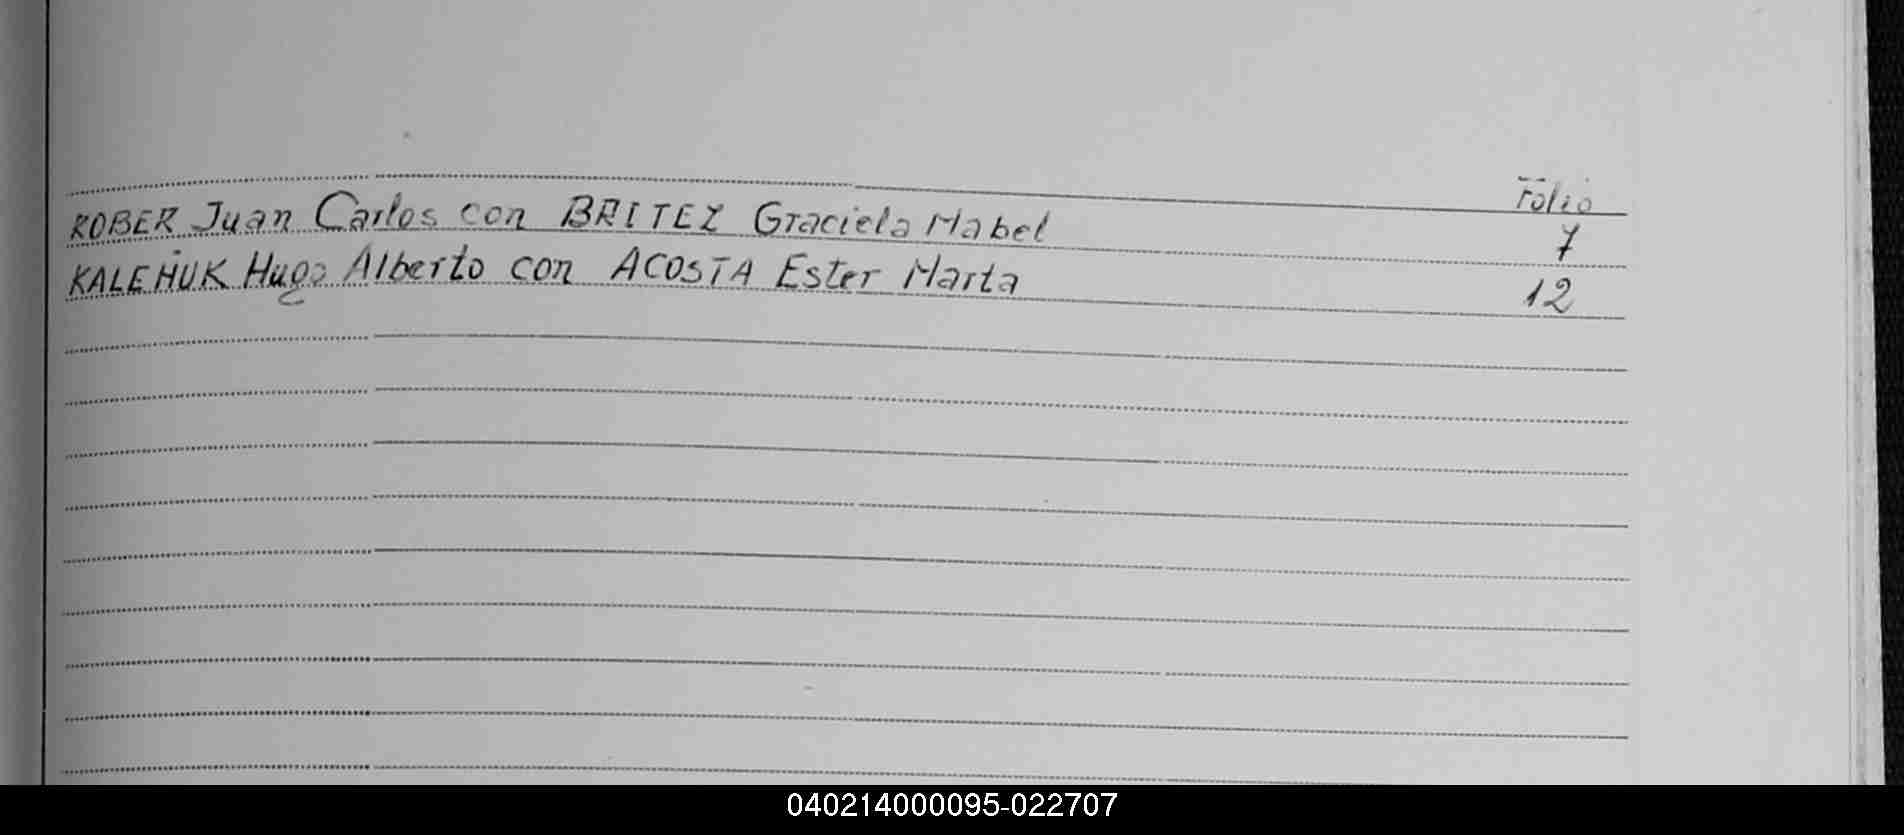 Folio
KOBER Juan Carlos con BRITEZ Graciela Mabel 7
KALEÑUK Hugo Alberto con ACOSTA Ester Marta 12
040214000095-022707